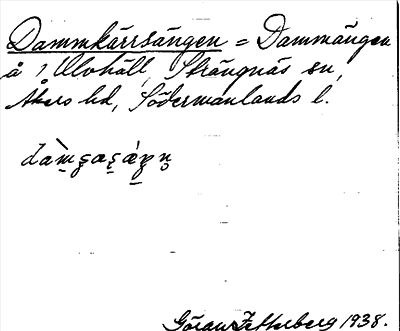 Dammkärrsängen = Dammängen
å 1 Ulvhäll, Strängnäs sn,
Åkers hd, Södermanlands l.
Göran Zetterberg 1938.